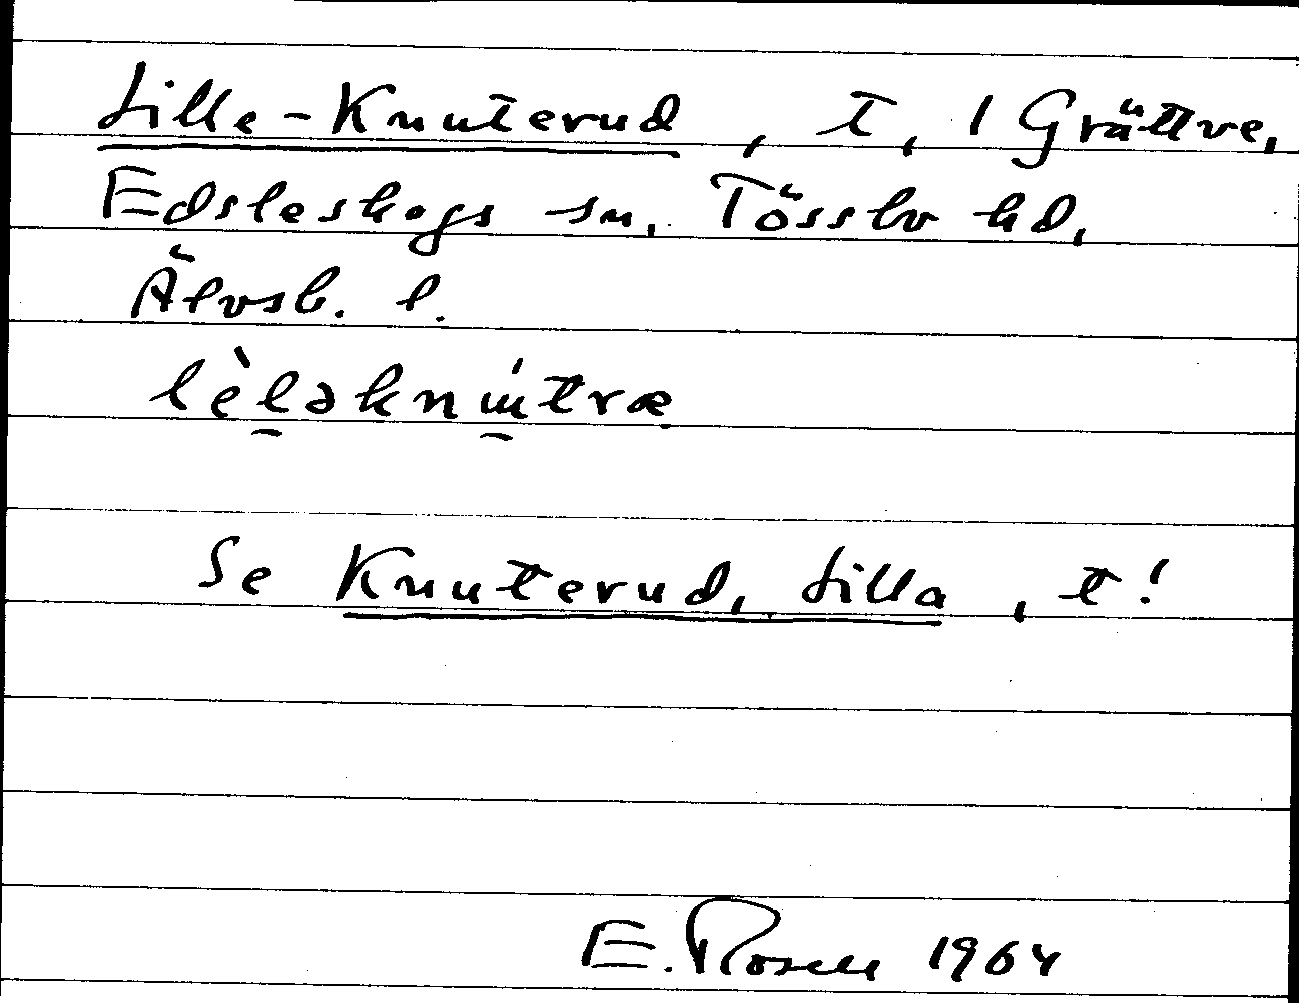 Lille-Knuterud, t, 1 Grättve,
Edsleskogs sn, Tössbo hd,
Älvsb. l.
lèləknútræ
Se Knuterud, Lilla, t!
E. Rosell 1964